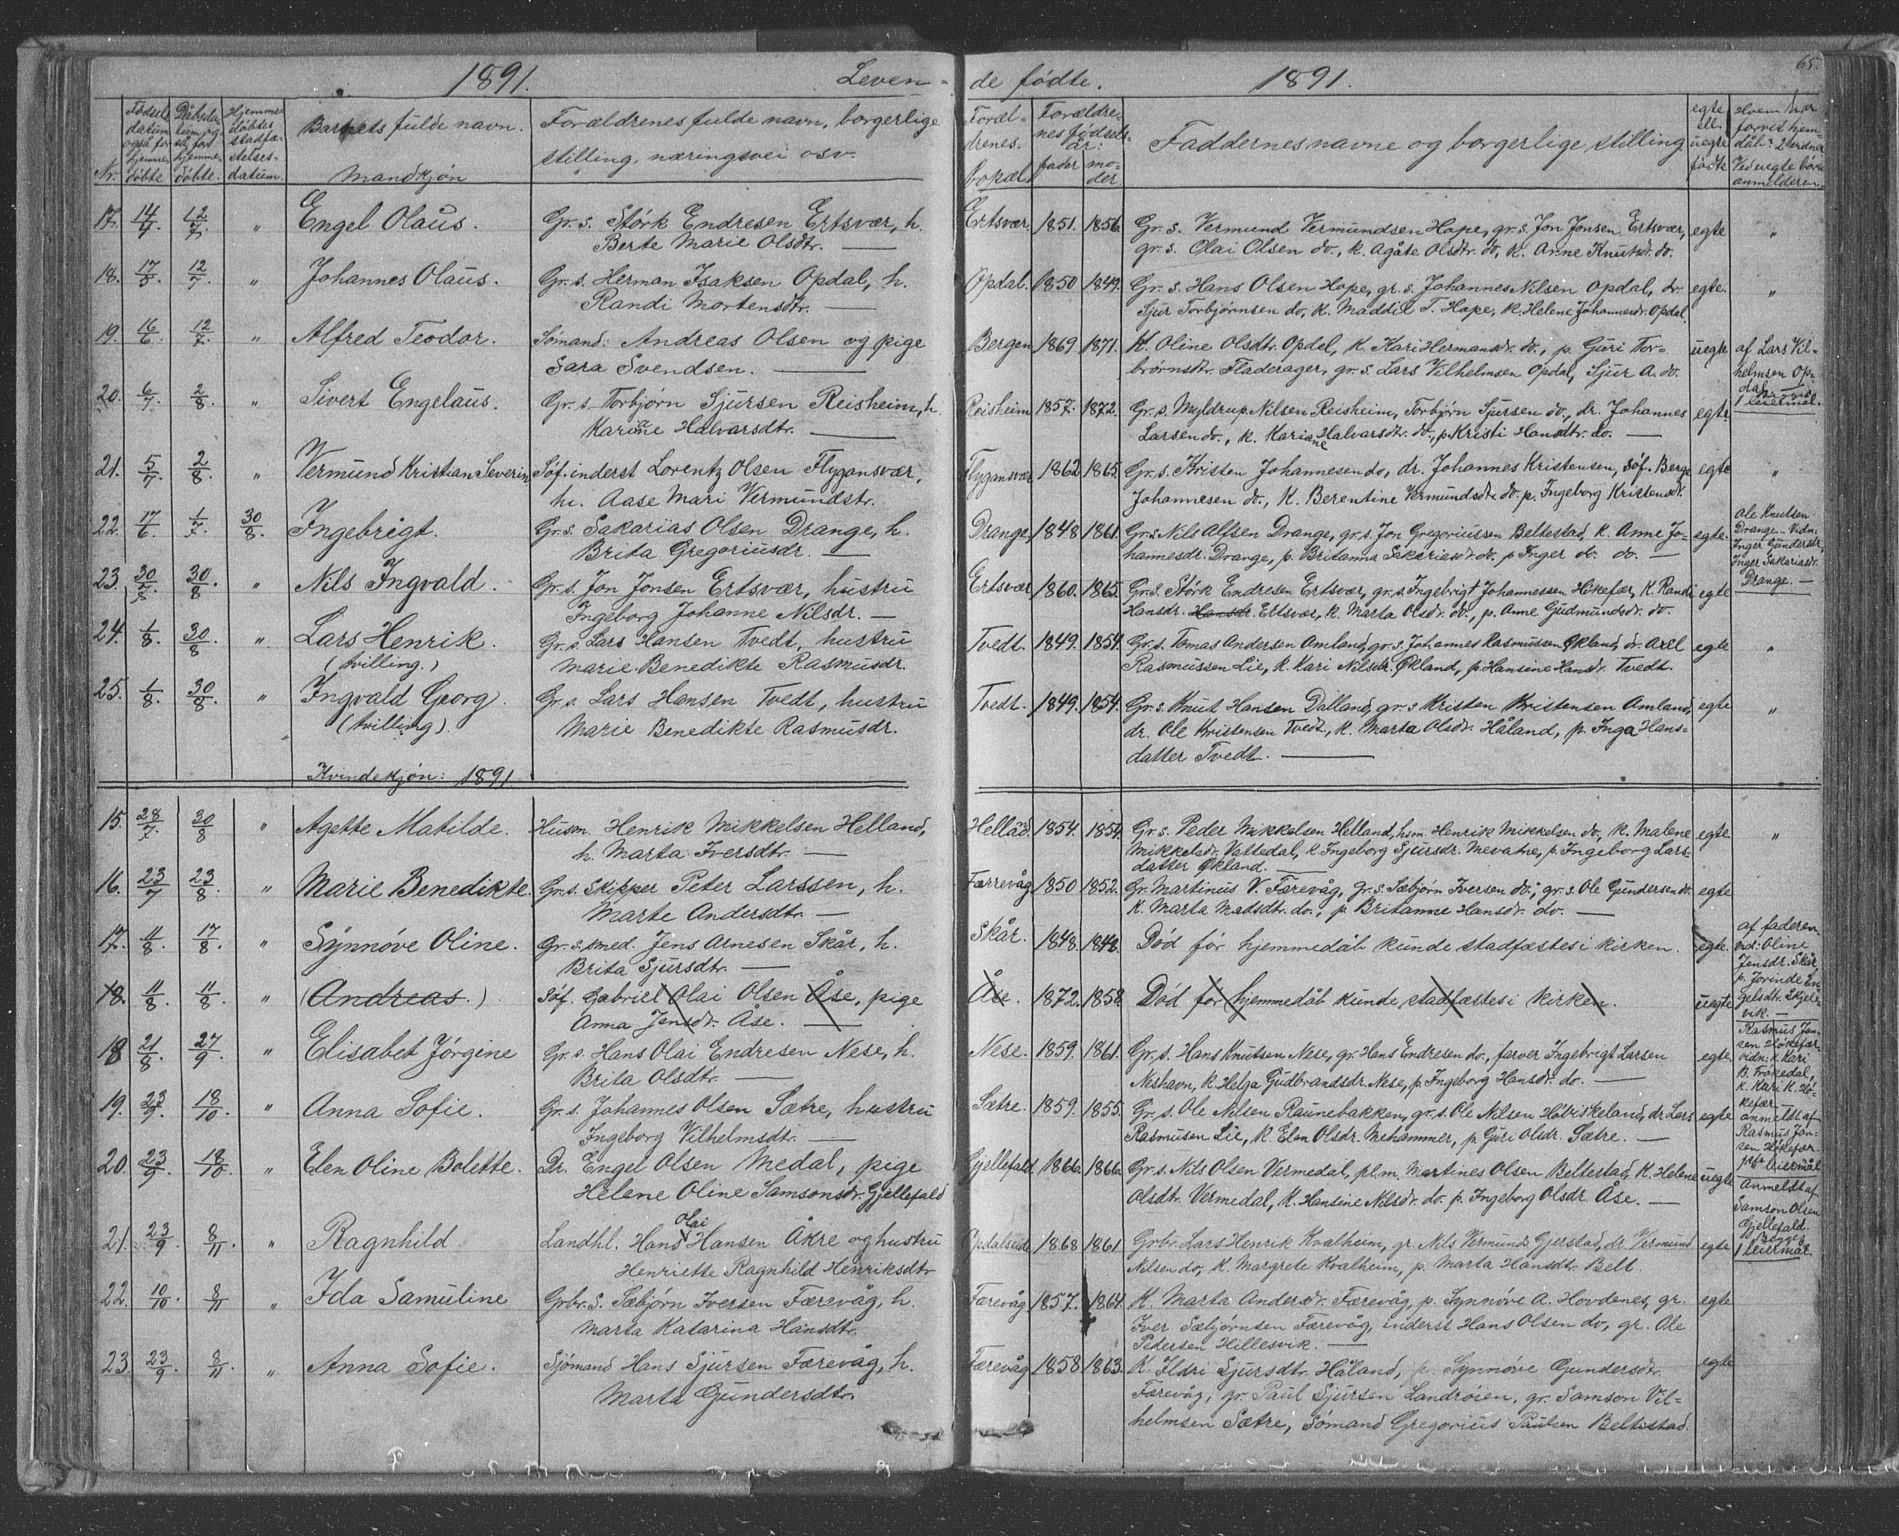 1891. Leven- de fødte. 1891. 65.
Nr. Fødselsdatum også for hjemmedøbte Dåbsdatum, også for hjemmedøbte. Hjemmedøbtes stadfæstelsesdatum. Barnets fulde navn. Mandkjøn Forældrenes fulde navn, borgerlige stilling, næringsvei osv. Forældrenes bopæl Forældrenes fødselsår: fader moder Faddernes navne og borgerlige stilling egte ell. uegte fødte Hvem har forret hjemdåb, 2 vidner Ved uegte børn anmelderen.
17. 14/4 12/7 " Engel Olaus. Gr. s. Størk Endresen Ertsvær, h. Ertsvær 1851. 1856. Gr. s. Vermund Vermundsen Hope, gr. s. Jon Jonsen Ertsvær, egte "
Berte Marie Olsdtr. — gr. s. Olai Olsen do., k. Agåte Olsdtr. do, k. Anne Knutsdr. do.
18. 17/5 12/7 " Johannes Olaus. Gr. s. Herman Isaksen Opdal, h. Opdal. 1850 1849. Gr. s. Hans Olsen Hope, gr. s. Johannes Nilsen Opdal, dr. egte. "
Randi Mortensdtr. — Sjur Torbjørnsen do, k. Maddil T. Hope, k. Helene Johannesdr. Opdal.
19. 16/6 12/7 " Alfred Teodor. Sømand: Andreas Olsen og pige Bergen 1869 1871. K. Oline Olsdtr. Opdal, k. Kari Hermansdr. do., p. Guri Tor- uegte af Lars Vil-
Sara Svendsen. — brørnsdtr. Fladerager, gr. s. Lars Vilhelmsen Opdal, Sjur A. do. helmsen Op-
dal
1 leiermål.
20. 6/7 2/8 " Sivert Engelaus. Gr. s. Torbjørn Sjursen Reisheim, h. Reisheim 1857. 1872. Gr. s. Myldrup Nilsen Reisheim, Torbjørn Sjursen do., dr. Johannes egte
Karine Halvarsdtr. — Larsen do., k. Kariane Halvarsdtr. do., p. Kristi Hansdtr. do. —
21. 5/7 2/8 " Vermund Kristian Severin Søf. inderst Lorentz Olsen Flygansvær, Flygansvær 1862 1865. Gr. s. Kristen Johannesen do, dr. Johannes Kristensen, søf. Berge egte "
h. Aase Mari Vermundstr. Johannesen do., k. Berentine Vermundsdtr. do. p. Ingeborg Kristensdtr.
22. 17/6 1/7. 30/8. Ingebrigt. Gr. s. Sakarias Olsen Drange, h. Drange 1848 1861. Gr. s. Nils Alfsen Drange, gr. s. Jon Gregoriussen Beltestad, k. Anne Jo- egte. Ole Knutsen
Brita Gregoriusdr. — hannesdr. Drange, p. Britanna Sakariasdr. do, p Inger do. do. — Drange. Vidn.
Inger Gundersdr.
Inger Sakariasdr.
Drange. —
23. 30/7 30/8 " Nils Ingvald. Gr. s. Jon Jonsen Ertsvær, hustru Ertsvær 1860. 1865. Gr. s. Størk Endresen Ertsvær, gr. s. Ingebrigt Johannessen Høkefær, k. Randi egte
Ingeborg Johanne Nilsdr. — Hansdr. Hansdr. Ertsvær, k. Marta Olsdr. do., p. Anne Gudmundsdr. do.
24. 1/8. 30/8 " Lars Henrik. Gr. s. Lars Hansen Tvedt, hustru Tvedt. 1849. 1854. Gr. s. Tomas Andersen Amland, gr. s. Johannes Rasmussen Økland, dr. Axel egte "
(tvilling.) Marie Benedikte Rasmusdr. Rasmussen Lie, k. Kari Nilsdr. Økland, p. Hansine Hansdr. Tvedt.
25. 1/8. 30/8 " Ingvald Georg. Gr. s. Lars Hansen Tvedt, hustru Tvedt. 1849. 1854. Gr. s. Knut Hansen Dalland, gr. s. Kristen Kristensen Amland, egte "
(tvilling). Marie Benedikte Rasmusdr. dr. Ole Kristensen Tvedt, k. Marta Olsdr. Håland, p. Inga Hans-
datter Tvedt. —
Kvindekjøn: 1891.
15. 28/7 30/8 " Agette Matilde. Husm. Henrik Mikkelsen Helland, Helland. 1854. 1854. Gr. s. Peder Mikkelsen Helland, hsm. Henrik Mikkelsen do, k. Malene egte "
h. Marta Iversdtr. — Mikkelsdr. Vattedal, k. Ingeborg Sjursdr. Mevatne, p. Ingeborg Lars-
datter Økland. —
16. 23/7 23/8 " Marie Benedikte. Gr. s. skipper Peter Larssen, h. Færrevåg 1850 1852. Gr. Martinus V. Færevåg, gr. s. Sæbjørn Iversen do., gr. s. Ole Gundersen do. egte
Marte Andersdtr. — k. Marta Madsdtr. do., p Britanne Hansdr. do. —
17. 11/8 17/8. " Synnøve Oline. Gr. s. smed. Jens Arnesen Skår, h. Skår. 1848. 1848. Død før hjemmedåb kunde stadfæstes i kirken. egte. af faderen
Brita Sjursdtr. — vid: Oline
Jensdr. Skår
p. Jorinde En-
gelsdtr. Skjel-
vik. —
18. 11/8 11/8 " (Andreas.) Søf. Gabriel Olai Olsen Åse, pige Åse. 1872. 1858 Død før hjemmedåb kunde stadfæstes i kirken. uegte
Anna Jensdr. Åse. —
18 21/8 27/9. " Elisabet Jørgine Gr. s. Hans Olai Endresen Nese, h. Nese. 1859. 1861. Gr. s. Hans Knutsen Nese, gr. Hans Endresen do., farver Ingebrigt Larsen egte Rasmus Jan-
Brita Olsdtr. — Neshavn, k. Helga Gudbrandsdr. Nese, p. Ingeborg Hansdr. do. — sen Høkefær.
vidn: k. Kari
B. Frøkedal,
k. Kari K. Hø-
kefær —
19. 23/9. 18/10. " Anna Sofie. Gr. s. Johannes Olsen Sætre, hustru Sætre. 1859. 1855. Gr. s. Ole Nilsen Raunebakken, gr. s. Ole Nilsen Håviskeland, dr. Lars egte anmeldt af
Ingeborg Vilhelmsdtr. — Rasmusen Lie, k. Elen Olsdr. Mehammer, p. Guri Olsdr. Sætre. — Rasmus Jan-
sen Høkefær.
leiermål
20. 23/9 18/10. " Elen Oline Bolette. Dr. Engel Olsen Medal, pige Gjellefald 1866 1866. Gr. s. Nils Olsen Vermedal, plm. Martines Olsen Beltestad, k. Helene uegte Anmeldt af
Helene Oline Samsonsdr. Gjellefald Olsdtr. Vermedal, k. Hansine Nilsdr. do. p. Ingeborg Olsdr. Åse. — Samson Olsen
Gjellefald.
Begges
1 leiermål.
21. 23/9. 8/11. " Ragnhild Landhl. Hans Olai Hansen Åkre og hustru Opdalseide 1868 1861. Grbr. Lars Henrik Kvalheim, gr. Nils Vermund Gjerstad, dr. Vermund egte
Henriette Ragnhild Henriksdtr. Nilsen do, k. Margrete Kvalheim, p. Marta Hansdtr. Belt.
22. 10/10. 8/11 " Ida Samuline Grbr. S. Sæbjørn Iversen Færevåg, h. Færevåg 1857. 1864. K. Marta Andersdr. Færevåg, p. Synnøve A. Hovdenes, gr. egte
Marta Katarina Hansdtr. Iver Sæbjørnsen Færevåg, inderst Hans Olsen do, gr. Ole
Pedersen Hillesvik. —
23. 23/9 8/11. " Anna Sofie. Sjømand Hans Sjursen Færevåg, h. Færevåg 1858 1863. K. Ildri Sjursdtr. Håland, p. Synnøve Gundersdtr. egte
Marta Gundersdtr. Færevåg, gr. Paul Sjursen Landrøien, gr. Samson Vil-
helmsen Sætre, Sømand Gregorius Paulsen Beltestad.